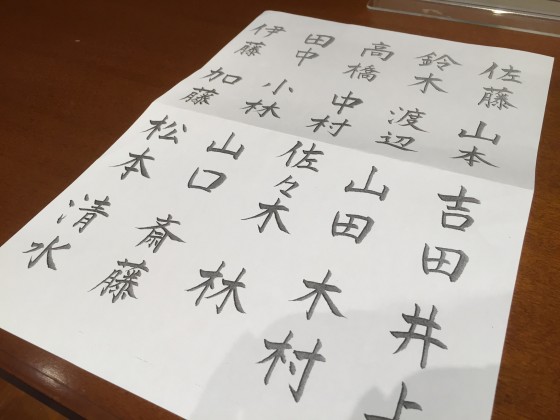 佐藤
鈴木
高橋
田中
伊藤
山本
渡辺
中村
小林
加藤
吉田
山田
佐々木
山口
松本
井上
木村
林
斎藤
清水